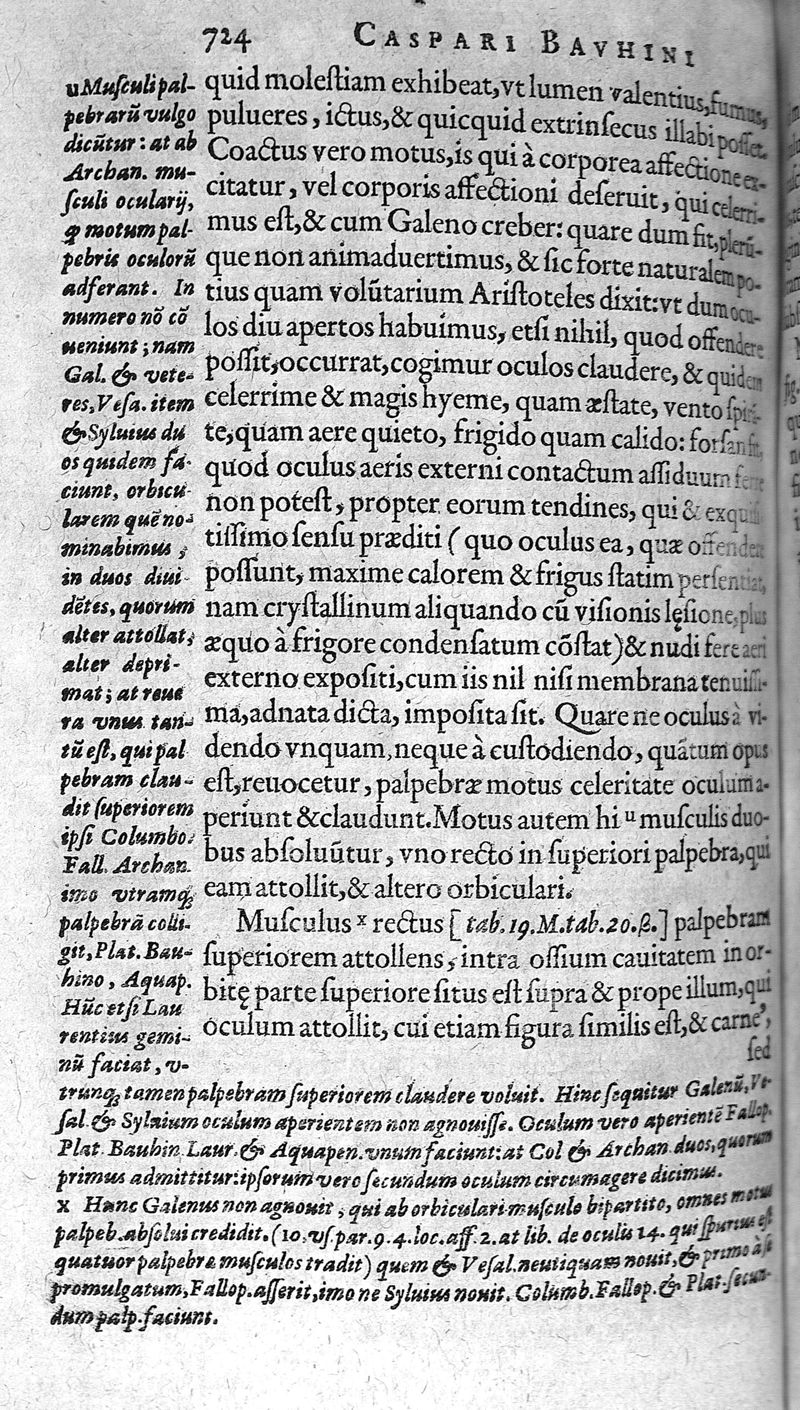 724 CASPARI BAVHINI
quid molestiam exhibeat, vt lumen valentius, fumus,
pulueres, ictus, & quicquid extrinsecus illabi posset.
Coactus vero motus, is qui à corporea affectione ex-
citatur, vel corporis affectioni deseruit, qui celerri-
mus est, & cum Galeno creber: quare dum fit, plerũ-
que non animaduertimus, & sic forte naturalem po-
tius quam volũtarium Aristoteles dixit: vt dum ocu-
los diu apertos habuimus, etsi nihil, quod offendere
possit, occurrat, cogimur oculos claudere, & quidem
celerrime & magis hyeme, quam æstate, vento spiran-
te, quam aere quieto, frigido quam calido: forsan fit,
quod oculus aeris externi contactum assiduum ferre
non potest, propter eorum tendines, qui & exqui-
tissimo sensu præditi (quo oculus ea, quæ offendere
possunt, maxime calorem & frigus statim persentiat,
nam crystallinum aliquando cũ visionis lęsione, plus
æquo à frigore condensatum cõstat) & nudi fere aeri
externo expositi, cum iis nil nisi membrana tenuissi-
ma, adnata dicta, imposita sit. Quare ne oculus à vi-
dendo vnquam, neque à custodiendo, quãtum opus
est, reuocetur, palpebræ motus celeritate oculum a-
periunt & claudunt. Motus autem hi u musculis duo-
bus absoluũtur, vno recto in superiori palpebra, qui
eam attollit, & altero orbiculari.
Musculus x rectus [tab. 19. M. tab. 20. β.] palpebram
superiorem attollens, intra ossium cauitatem in or-
bitę parte superiore situs est supra & prope illum, qui
oculum attollit, cui etiam figura similis est, & carne,
sed
u Musculi pal-
pebrarũ vulgo
dicũtur: at ab
Archan. mu-
sculi ocularij,
ꝙ motum pal-
pebris oculorũ
adferant. In
numero nõ cõ
ueniunt; nam
Gal. & vete-
res, Vesa. item
& Syluius du
os quidem fa-
ciunt, orbicu-
larem quẽ no-
minabimus,
in duos diui-
dẽtes, quorum
alter attollat,
alter depri-
mat; at reue
ra vnus tan-
tũ est, qui pal
pebram clau-
dit superiorem
ipsi Columbo.
Fall. Archan.
imo vtramq;
palpebrã colli-
git, Plat. Bau-
hino, Aquap.
Hũc etsi Lau
rentius gemi-
nũ faciat, v-
trunq; tamen palpebram superiorem claudere voluit. Hinc sequitur Galenũ, Ve-
sal. & Syluium oculum aperientem non agnouisse. Oculum vero aperientẽ Fallop.
Plat. Bauhin. Laur. & Aquapen. vnum faciunt: at Col & Archan. duos, quorum
primus admittitur: ipsorum vero secundum oculum circumagere dicimus.
x Hunc Galenus non agnouit, qui ab orbiculari musculo bipartito, omnes motus
palpeb. absolui credidit. (10. vs. par. 9. 4. loc. aff. 2. at lib. de oculis 14. qui spurius est
quatuor palpebræ musculos tradit) quem & Vesal. neutiquam nouit, & primo à se
promulgatum, Fallop. asserit, imo ne Syluius nouit. Columb. Fallop. & Plat. secun-
dum palp. faciunt.